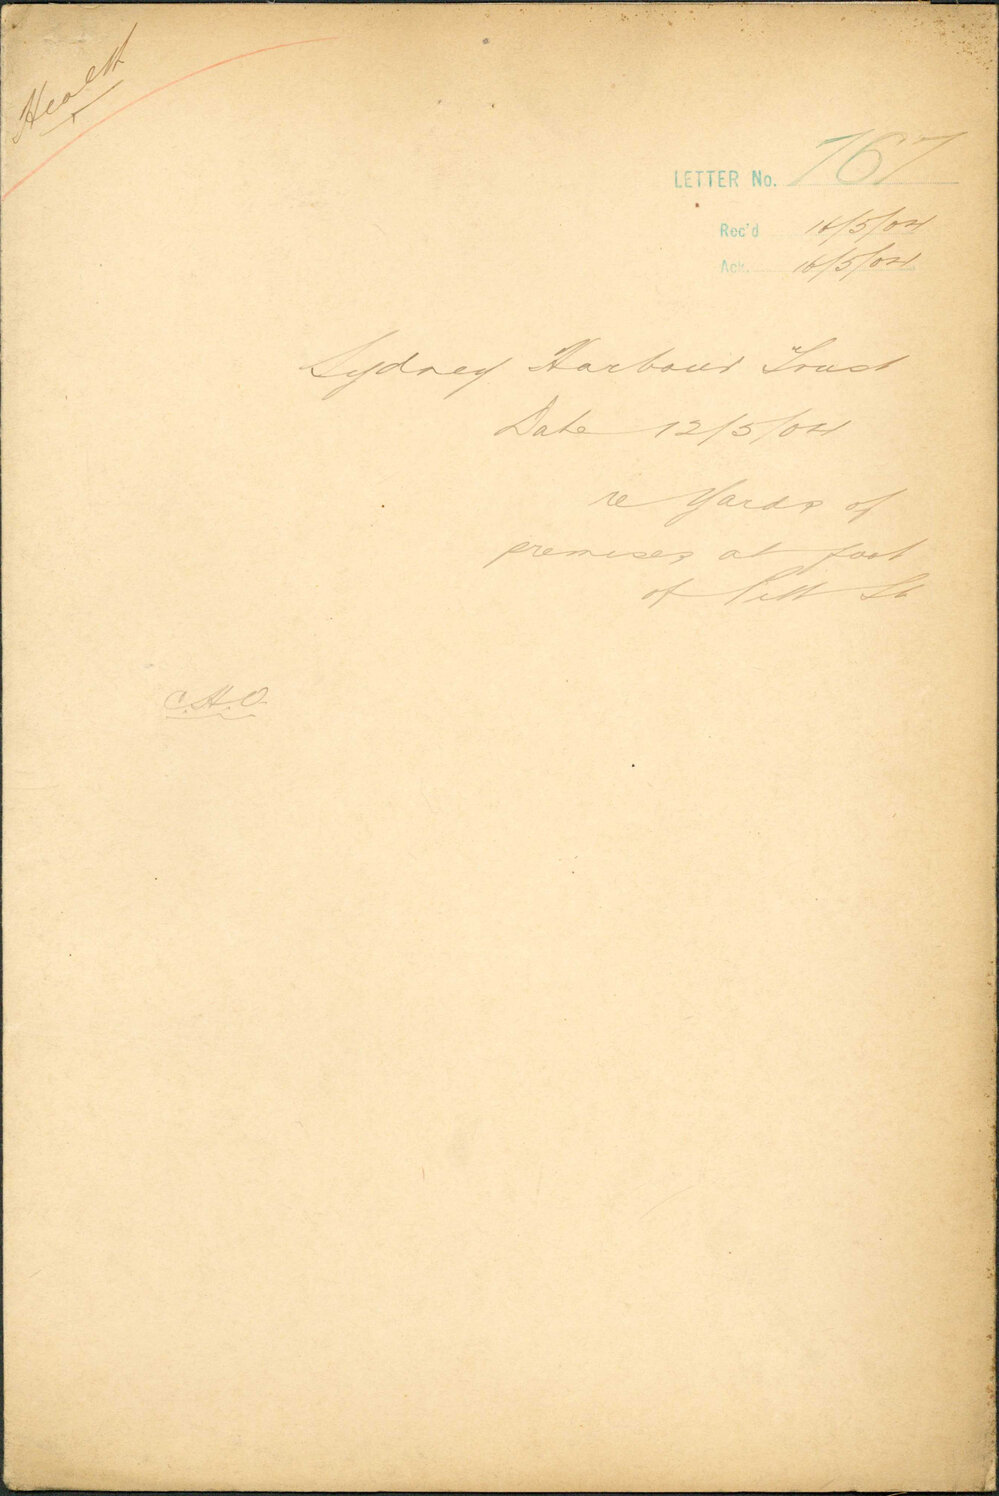 Health
LETTER No. 767
Rec'd 16/5/04
Ack. 16/5/04
Sydney Harbour Trust
Date 12/5/04
re Yards of
premises at foot
of Pitt St
C.H.O.